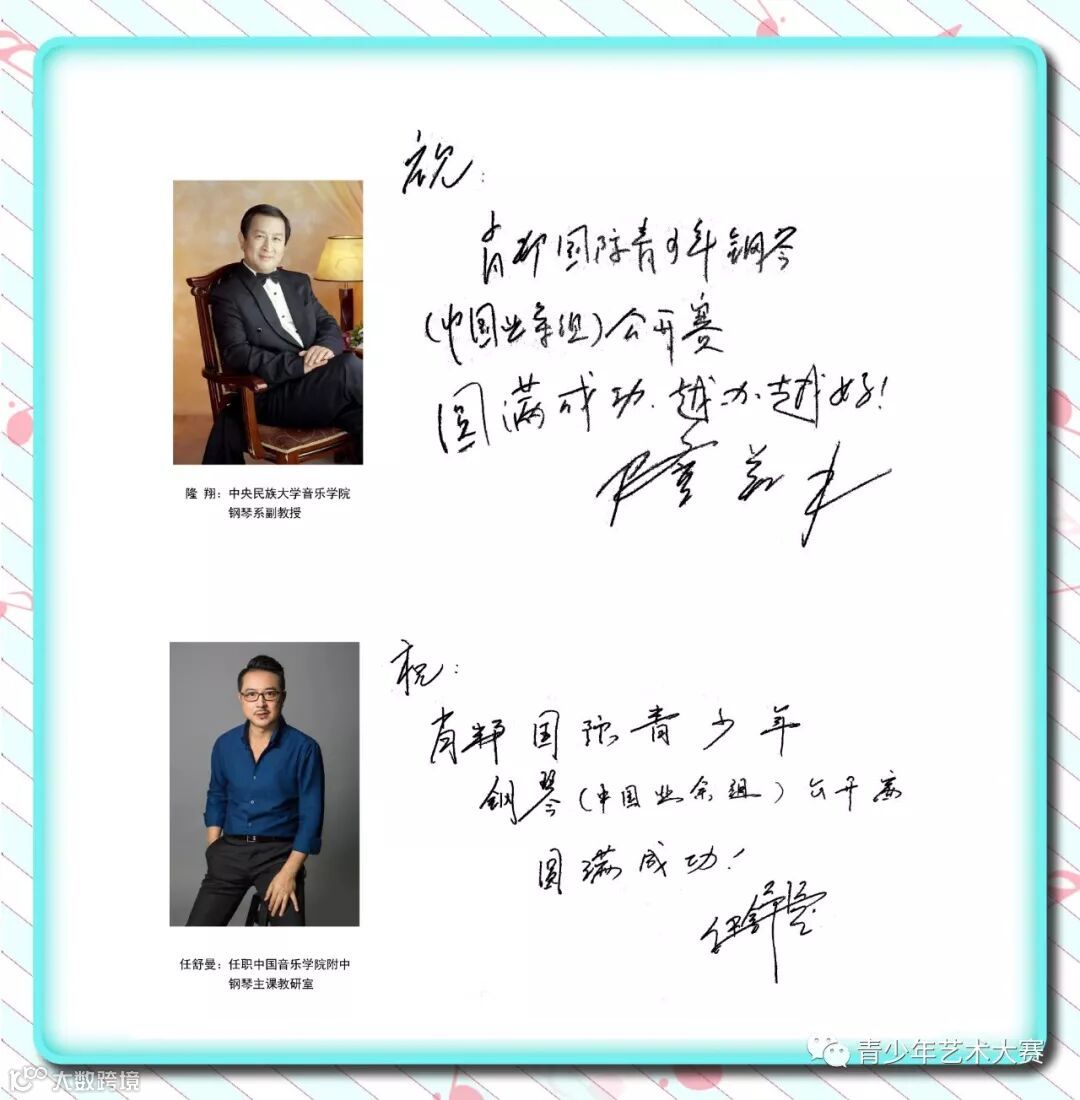 祝:
肖邦国际青少年钢琴
(中国业余组)公开赛
圆满成功.越办越好!
隆翔
隆 翔：中央民族大学音乐学院
钢琴系副教授
祝:
肖邦国际青少年
钢琴(中国业余组)公开赛
圆满成功!
任舒曼
任舒曼：任职中国音乐学院附中
钢琴主课教研室
青少年艺术大赛
大数跨境